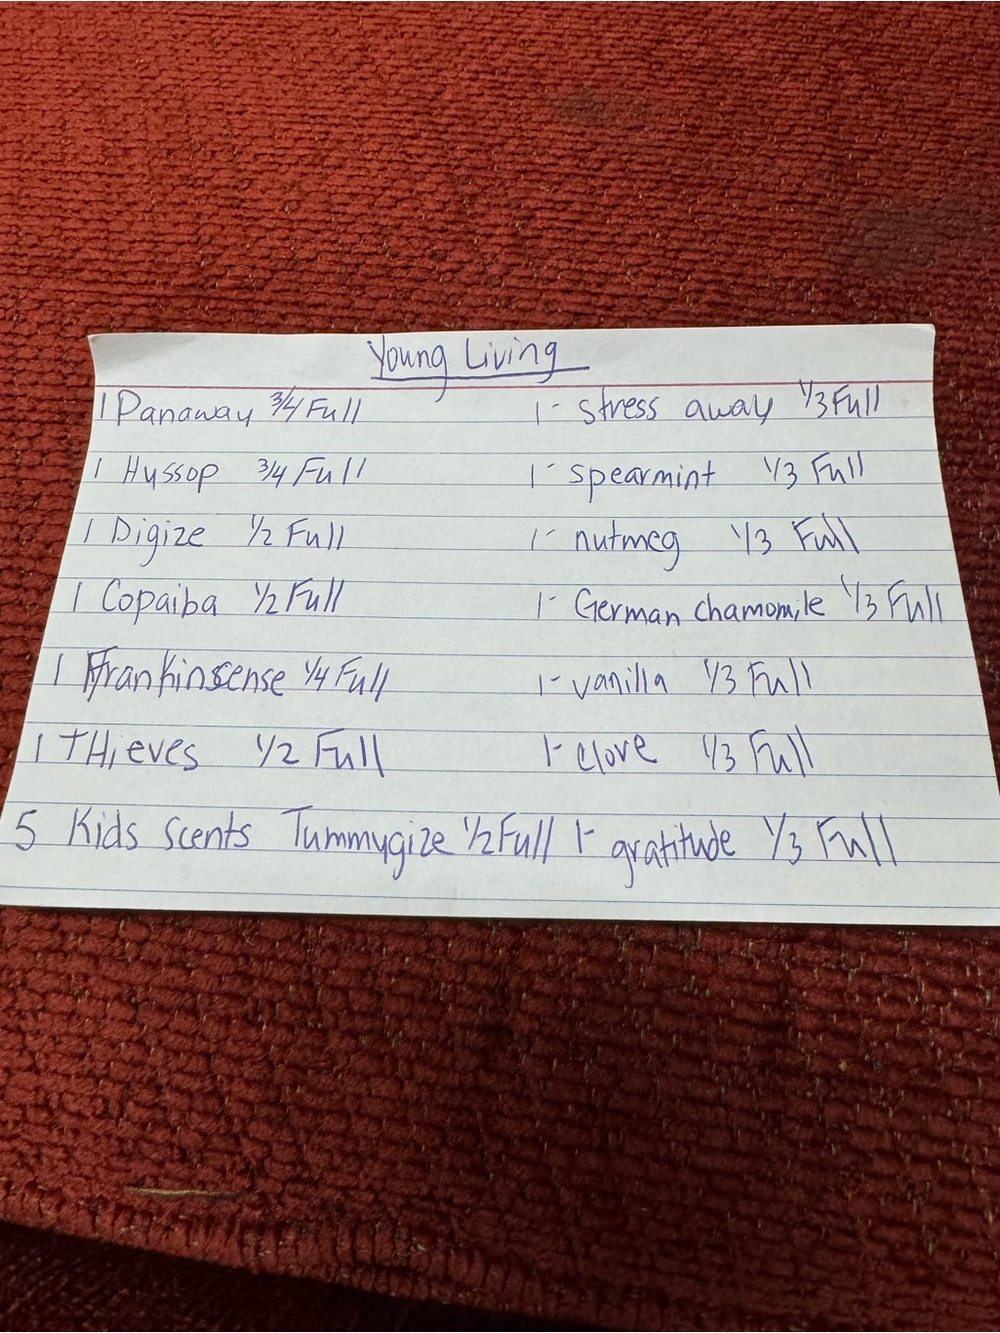 Young Living
1 Panaway 3/4 Full
1 Hyssop 3/4 Full
1 Digize 1/2 Full
1 Copaiba 1/2 Full
1 Frankinscense 1/4 Full
1 THieves 1/2 Full
5 Kids Scents Tummygize 1/2 Full
1- stress away 1/3 Full
1- spearmint 1/3 Full
1- nutmeg 1/3 Full
1- German chamomile 1/3 Full
1- vanilla 1/3 Full
1- clove 1/3 Full
1- gratitude 1/3 Full